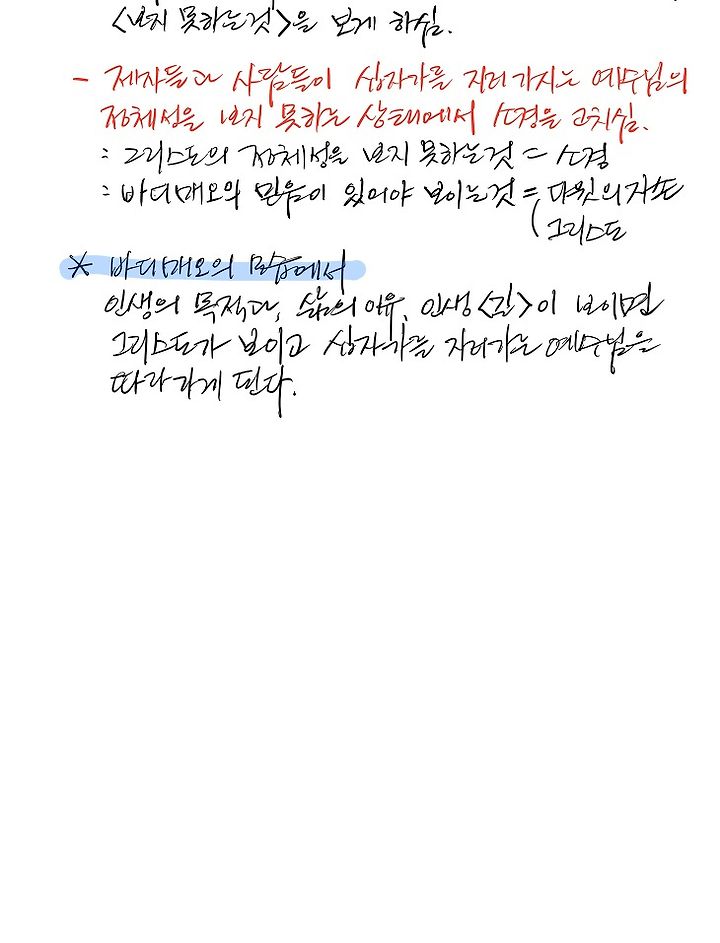 <보지 못하는것>을 보게 하심.
- 제자들과 사람들이 십자가를 지러 가시는 예수님의
정체성을 보지 못하는 상태에서 소경을 고치심.
: 그리스도의 정체성을 보지 못하는것 = 소경
: 바디매오의 믿음이 있어야 보이는것 = 다윗의 자손
( 그리스도
* 바디매오의 모습에서
인생의 목적과, 삶의 이유, 인생<길>이 보이면
그리스도가 보이고 십자가를 지러가는 예수님을
따라가게 된다.